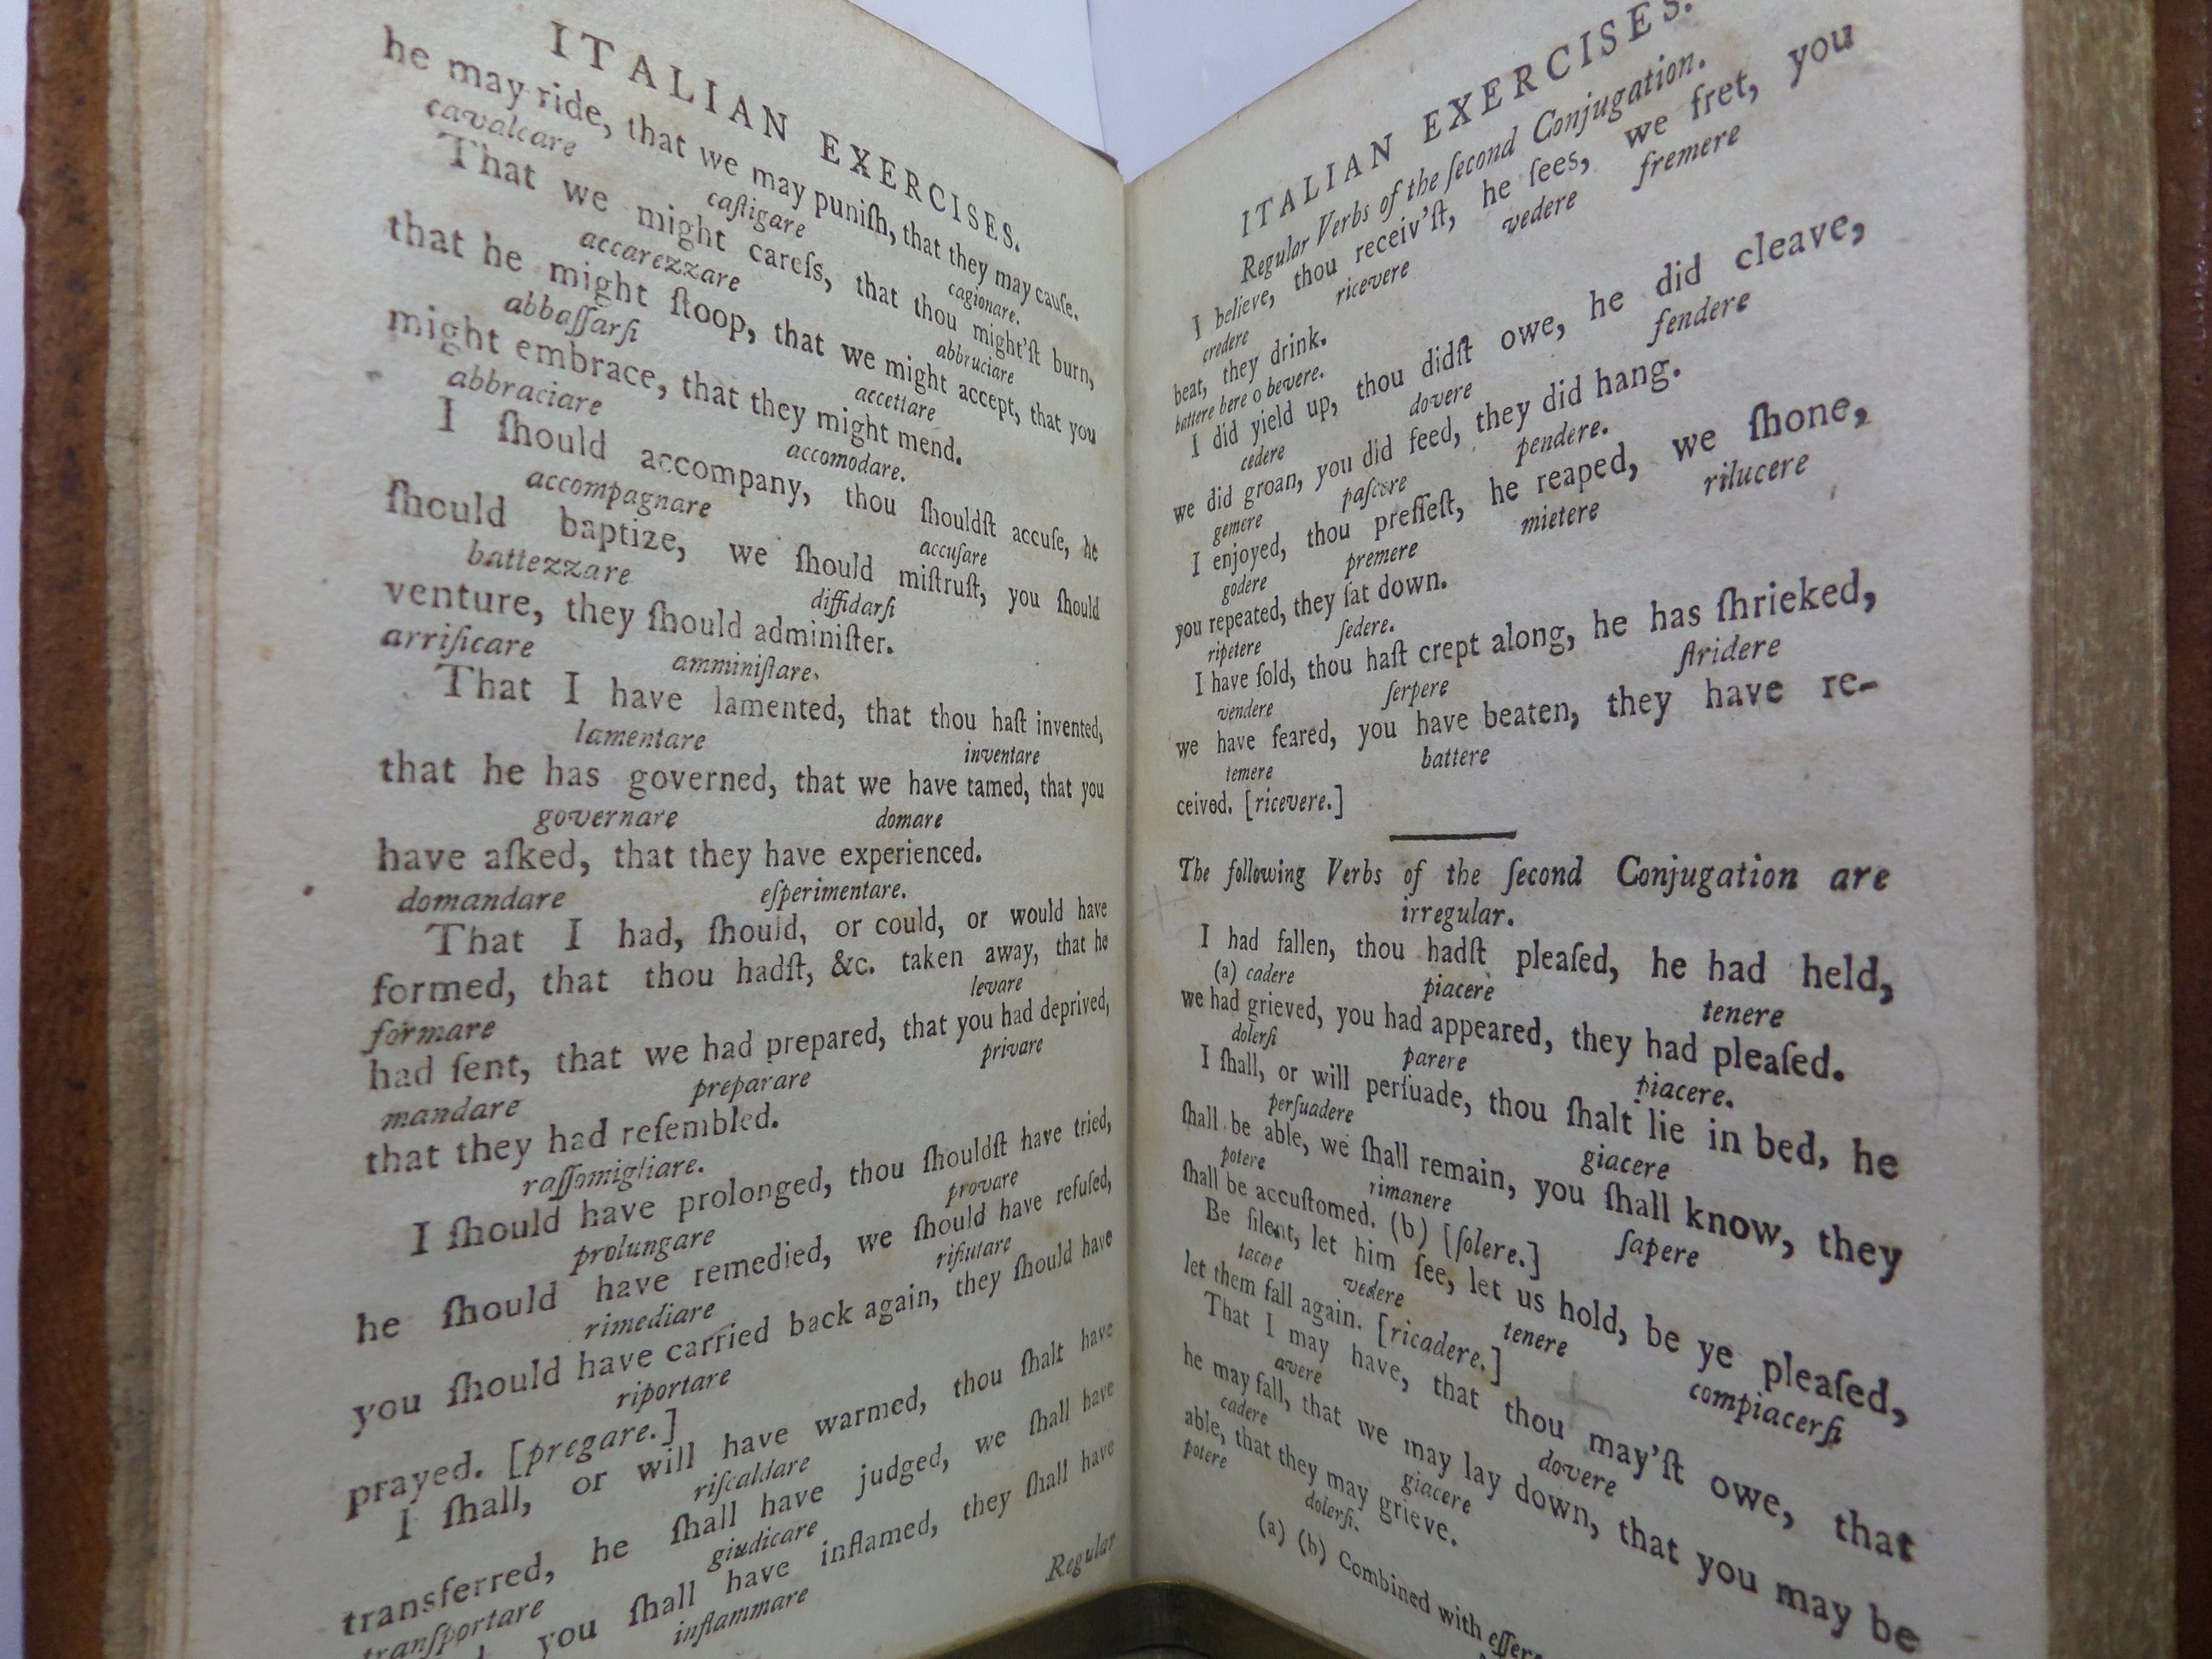 ITALIAN EXERCISES.
he may ride, that we may puniſh, that they may cauſe.
cavalcare caſtigare cagionare.
That we might careſs, that thou might'ſt burn,
accarezzare abbruciare
that he might ſtoop, that we might accept, that you
abbaſſarſi accettare
might embrace, that they might mend.
abbraciare accomodare.
I ſhould accompany, thou ſhouldſt accuſe, he
accompagnare accuſare
ſhould baptize, we ſhould miſtruſt, you ſhould
battezzare diffidarſi
venture, they ſhould adminiſter.
arriſicare amminiſtare.
That I have lamented, that thou haſt invented,
lamentare inventare
that he has governed, that we have tamed, that you
governare domare
have aſked, that they have experienced.
domandare eſperimentare.
That I had, ſhould, or could, or would have
formed, that thou hadſt, &c. taken away, that he
formare levare
had ſent, that we had prepared, that you had deprived,
mandare preparare privare
that they had reſembled.
raſſomigliare.
I ſhould have prolonged, thou ſhouldſt have tried,
prolungare provare
he ſhould have remedied, we ſhould have refuſed,
rimediare rifiutare
you ſhould have carried back again, they ſhould have
riportare
prayed. [pregare.]
I ſhall, or will have warmed, thou ſhalt have
riſcaldare
transferred, he ſhall have judged, we ſhall have
tranſportare giudicare
you ſhall have inflamed, they ſhall have
inflammare
Regular
ITALIAN EXERCISES.
Regular Verbs of the ſecond Conjugation.
I believe, thou receiv'ſt, he ſees, we fret, you
credere ricevere vedere fremere
beat, they drink.
battere bere o bevere.
I did yield up, thou didſt owe, he did cleave,
cedere dovere fendere
we did groan, you did feed, they did hang.
gemere paſcere pendere.
I enjoyed, thou preſſeſt, he reaped, we ſhone,
godere premere mietere rilucere
you repeated, they ſat down.
ripetere ſedere.
I have ſold, thou haſt crept along, he has ſhrieked,
vendere ſerpere ſtridere
we have feared, you have beaten, they have re-
temere battere
ceived. [ricevere.]
The following Verbs of the ſecond Conjugation are
irregular.
I had fallen, thou hadſt pleaſed, he had held,
(a) cadere piacere tenere
we had grieved, you had appeared, they had pleaſed.
dolerſi parere piacere.
I ſhall, or will perſuade, thou ſhalt lie in bed, he
perſuadere giacere
ſhall be able, we ſhall remain, you ſhall know, they
potere rimanere ſapere
ſhall be accuſtomed. (b) [ſolere.]
Be ſilent, let him ſee, let us hold, be ye pleaſed,
tacere vedere tenere compiacerſi
let them fall again. [ricadere.]
That I may have, that thou may'ſt owe, that
avere dovere
he may fall, that we may lay down, that you may be
cadere giacere
able, that they may grieve.
potere dolerſi.
(a) (b) Combined with eſſere